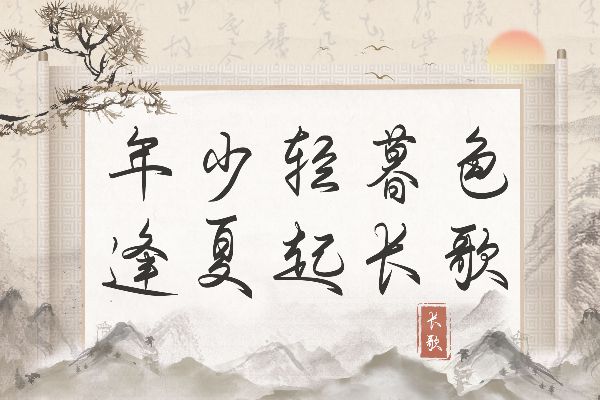 年少轻暮色
逢夏起长歌
长歌